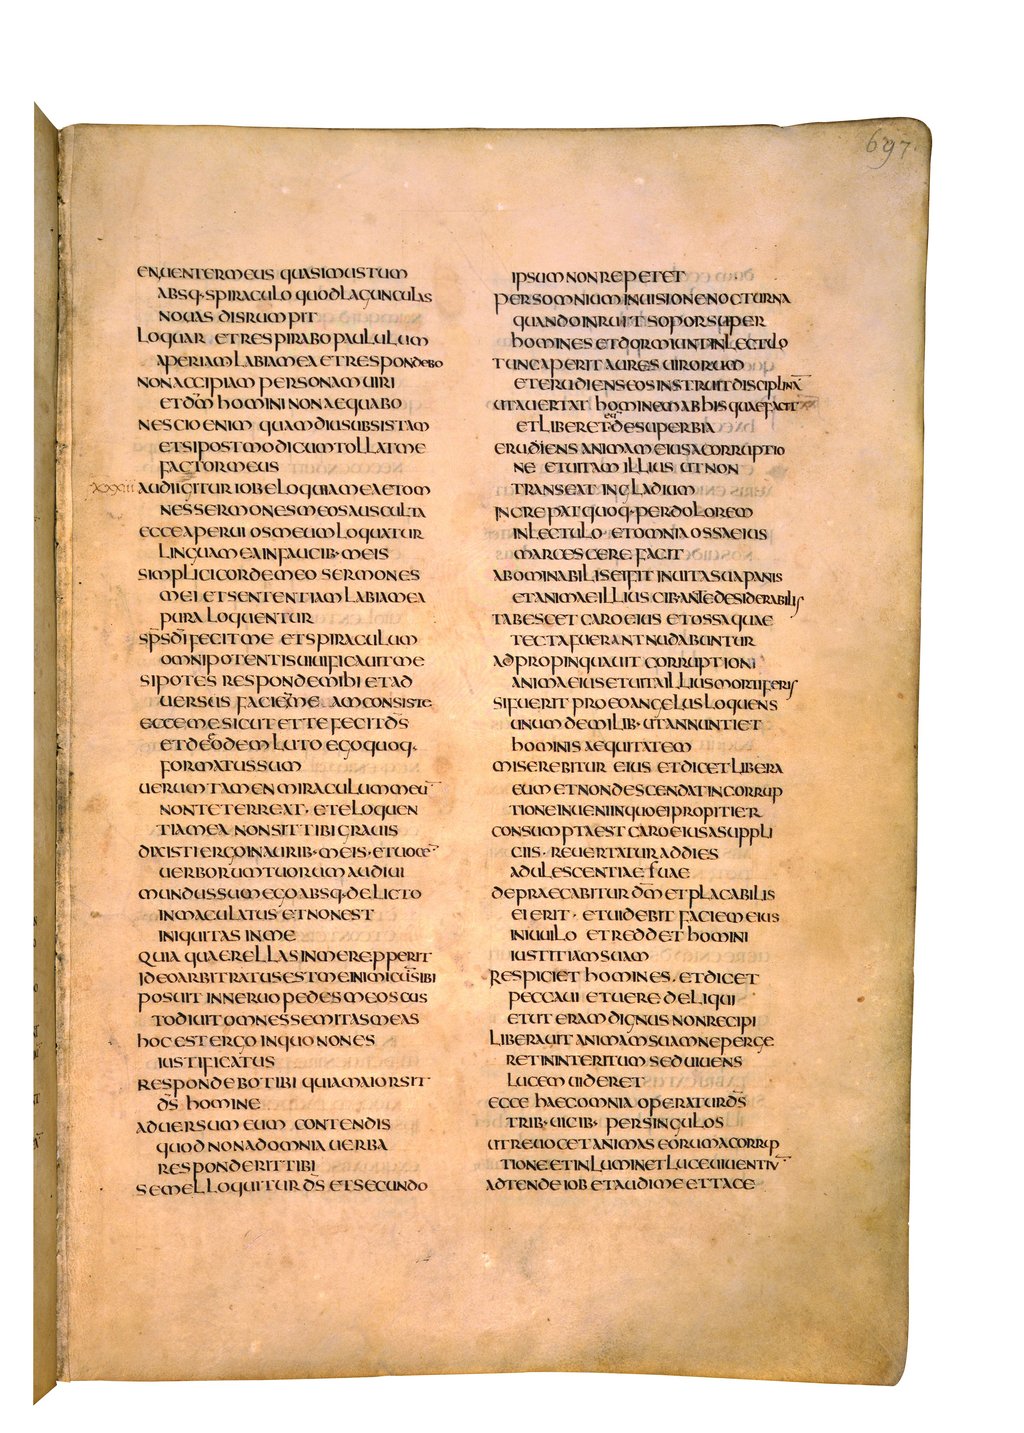 697.
EN UENTER MEUS QUASI MUSTUM
ABSQ· SPIRACULO QUOD LAGUNCULAS
NOUAS DISRUMPIT
LOQUAR ET RESPIRABO PAULULUM
APERIAM LABIA MEA ET RESPONDEBO
NON ACCIPIAM PERSONAM UIRI
ET DM̄ HOMINI NON AEQUABO
NESCIO ENIM QUAMDIU SUBSISTAM
ET SI POST MODICUM TOLLAT ME
FACTOR MEUS
XXXIII AUDI IGITUR IOB ELOQUIA MEA ET OM
NES SERMONES MEOS AUSCULTA
ECCE APERUI OS MEUM LOQUATUR
LINGUA MEA IN FAUCIB· MEIS
SIMPLICI CORDE MEO SERMONES
MEI ET SENTENTIAM LABIA MEA
PURA LOQUENTUR
SP̄S DĪ FECIT ME ET SPIRACULUM
OMNIPOTENTIS UIUIFICAUIT ME
SI POTES RESPONDE MIHI ET AD
UERSUS FACIEM MEAM CONSISTE
ECCE ME SICUT ET TE FECIT DS̄
ET DE EODEM LUTO EGO QUOQ·
FORMATUS SUM
UERUMTAMEN MIRACULUM MEŪ
NON TE TERREAT· ET ELOQUEN
TIA MEA NON SIT TIBI GRAUIS
DIXISTI ERGO IN AURIB· MEIS· ET UOCĒ
UERBORUM TUORUM AUDIUI
MUNDUS SUM EGO ABSQ· DELICTO
INMACULATUS ET NON EST
INIQUITAS IN ME
QUIA QUAERELLAS IN ME REPPERIT
IDEO ARBITRATUS EST ME INIMICŪ SIBI
POSUIT IN NERUO PEDES MEOS CUS
TODIUIT OMNES SEMITAS MEAS
HOC EST ERGO IN QUO NON ES
IUSTIFICATUS
RESPONDEBO TIBI QUIA MAIOR SIT
DS̄ HOMINE
ADUERSUM EUM CONTENDIS
QUOD NON AD OMNIA UERBA
RESPONDERIT TIBI
SEMEL LOQUITUR DS̄ ET SECUNDO
IPSUM NON REPETET
PER SOMNIUM IN UISIONE NOCTURNA
QUANDO INRUIT SOPOR SUPER
HOMINES ET DORMIUNT IN LECTULO
TUNC APERIT AURES UIRORUM
ET ERUDIENS EOS INSTRUIT DISCIPLINĀ
UT AUERTAT HOMINEM AB HIS QUAE FACIT
ET LIBERET EŪ DE SUPERBIA
ERUDIENS ANIMAM EIUS A CORRUPTIO
NE ET UITAM ILLIUS UT NON
TRANSEAT IN GLADIUM
INCREPAT QUOQ· PER DOLOREM
IN LECTULO· ET OMNIA OSSA EIUS
MARCESCERE FACIT
ABOMINABILIS EI FIT IN UITA SUA PANIS
ET ANIMAE ILLIUS CIB· ANTE DESIDERABILIS
TABESCET CARO EIUS ET OSSA QUAE
TECTA FUERANT NUDABUNTUR
ADPROPINQUAUIT CORRUPTIONI
ANIMA EIUS ET UITA ILLIUS MORTIFERIS
SI FUERIT PRO EO ANGELUS LOQUENS
UNUM DE MILIB· UT ANNUNTIET
HOMINIS AEQUITATEM
MISEREBITUR EIUS ET DICET LIBERA
EUM ET NON DESCENDAT IN CORRUP
TIONE INUENI IN QUO EI PROPITIER
CONSUMPTA EST CARO EIUS A SUPPLI
CIIS· REUERTATUR AD DIES
ADULESCENTIAE SUAE
DEPRAECABITUR DM̄ ET PLACABILIS
EI ERIT· ET UIDEBIT FACIEM EIUS
IN IUUILO ET REDDET HOMINI
IUSTITIAM SUAM
RESPICIET HOMINES· ET DICET
PECCAUI ET UERE DELIQUI
ET UT ERAM DIGNUS NON RECIPI
LIBERAUIT ANIMAM SUAM NE PERGE
RET IN INTERITUM SED UIUENS
LUCEM UIDERET
ECCE HAEC OMNIA OPERATUR DS̄
TRIB· UICIB· PER SINGULOS
UT REUOCET ANIMAS EORUM A CORRUP
TIONE ET INLUMINET LUCE UIUENTIŪ
ADTENDE IOB ET AUDI ME ET TACE